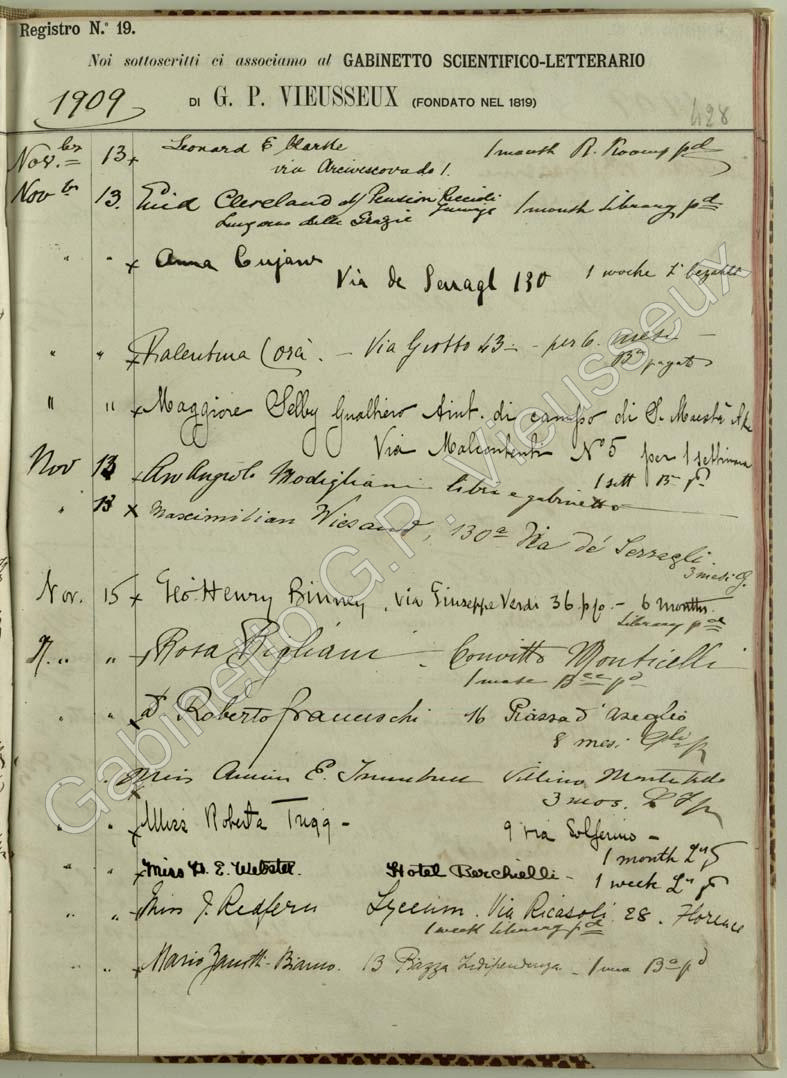 Registro N.° 19.
Noi sottoscritti ci associamo al GABINETTO SCIENTIFICO-LETTERARIO
1909
DI G. P. VIEUSSEUX (FONDATO NEL 1819)
428
Nov.bre 13 Leonard E Clarke 1 month R. Rooms pd
via Arcivescovado 1.
Nov br 13. Enid Cleveland Pension Riccioli 1 month Library pd
Lungarno delle Grazie
" " x Anna Cujaw
Via de Serragl 130 1 woche bezahlt
" " x Valentina Corà. – Via Giotto 43 – per 6. mesi –
pagato
" " x Maggiore Selby Gualtiero Aiut. di campo di S. Maestà
Via Malcontenti N° 5 per 1 settimana
Nov 13 x Angiolo Modigliani libri e gabinetto 1 sett
" 13 x Maximilian Wiesand, 130a Via de' Serragli.
3 mesi
Nov. 15 x Geo. Henry Binney, via Giuseppe Verdi 36 p/o. – 6 months.
Library pd
N. " " Rosa Pigliani – Convitto Monticelli
1 mese pd
" " Dr Roberto Franceschi 16 Piazza d'Azeglio
8 mesi
" Miss E. Villino
3 mos.
" " x Miss Roberta Trigg – 9 via Solferino –
1 month
" " x Miss E. Webster. Hotel Berchielli – 1 week
" " x Miss J. Redfern Lyceum. Via Ricasoli. 28. Florence
1 week Library pd
" " x Mario Zanotti-Bianco. 13 Piazza Indipendenza – pd
Gabinetto G.P. Vieusseux